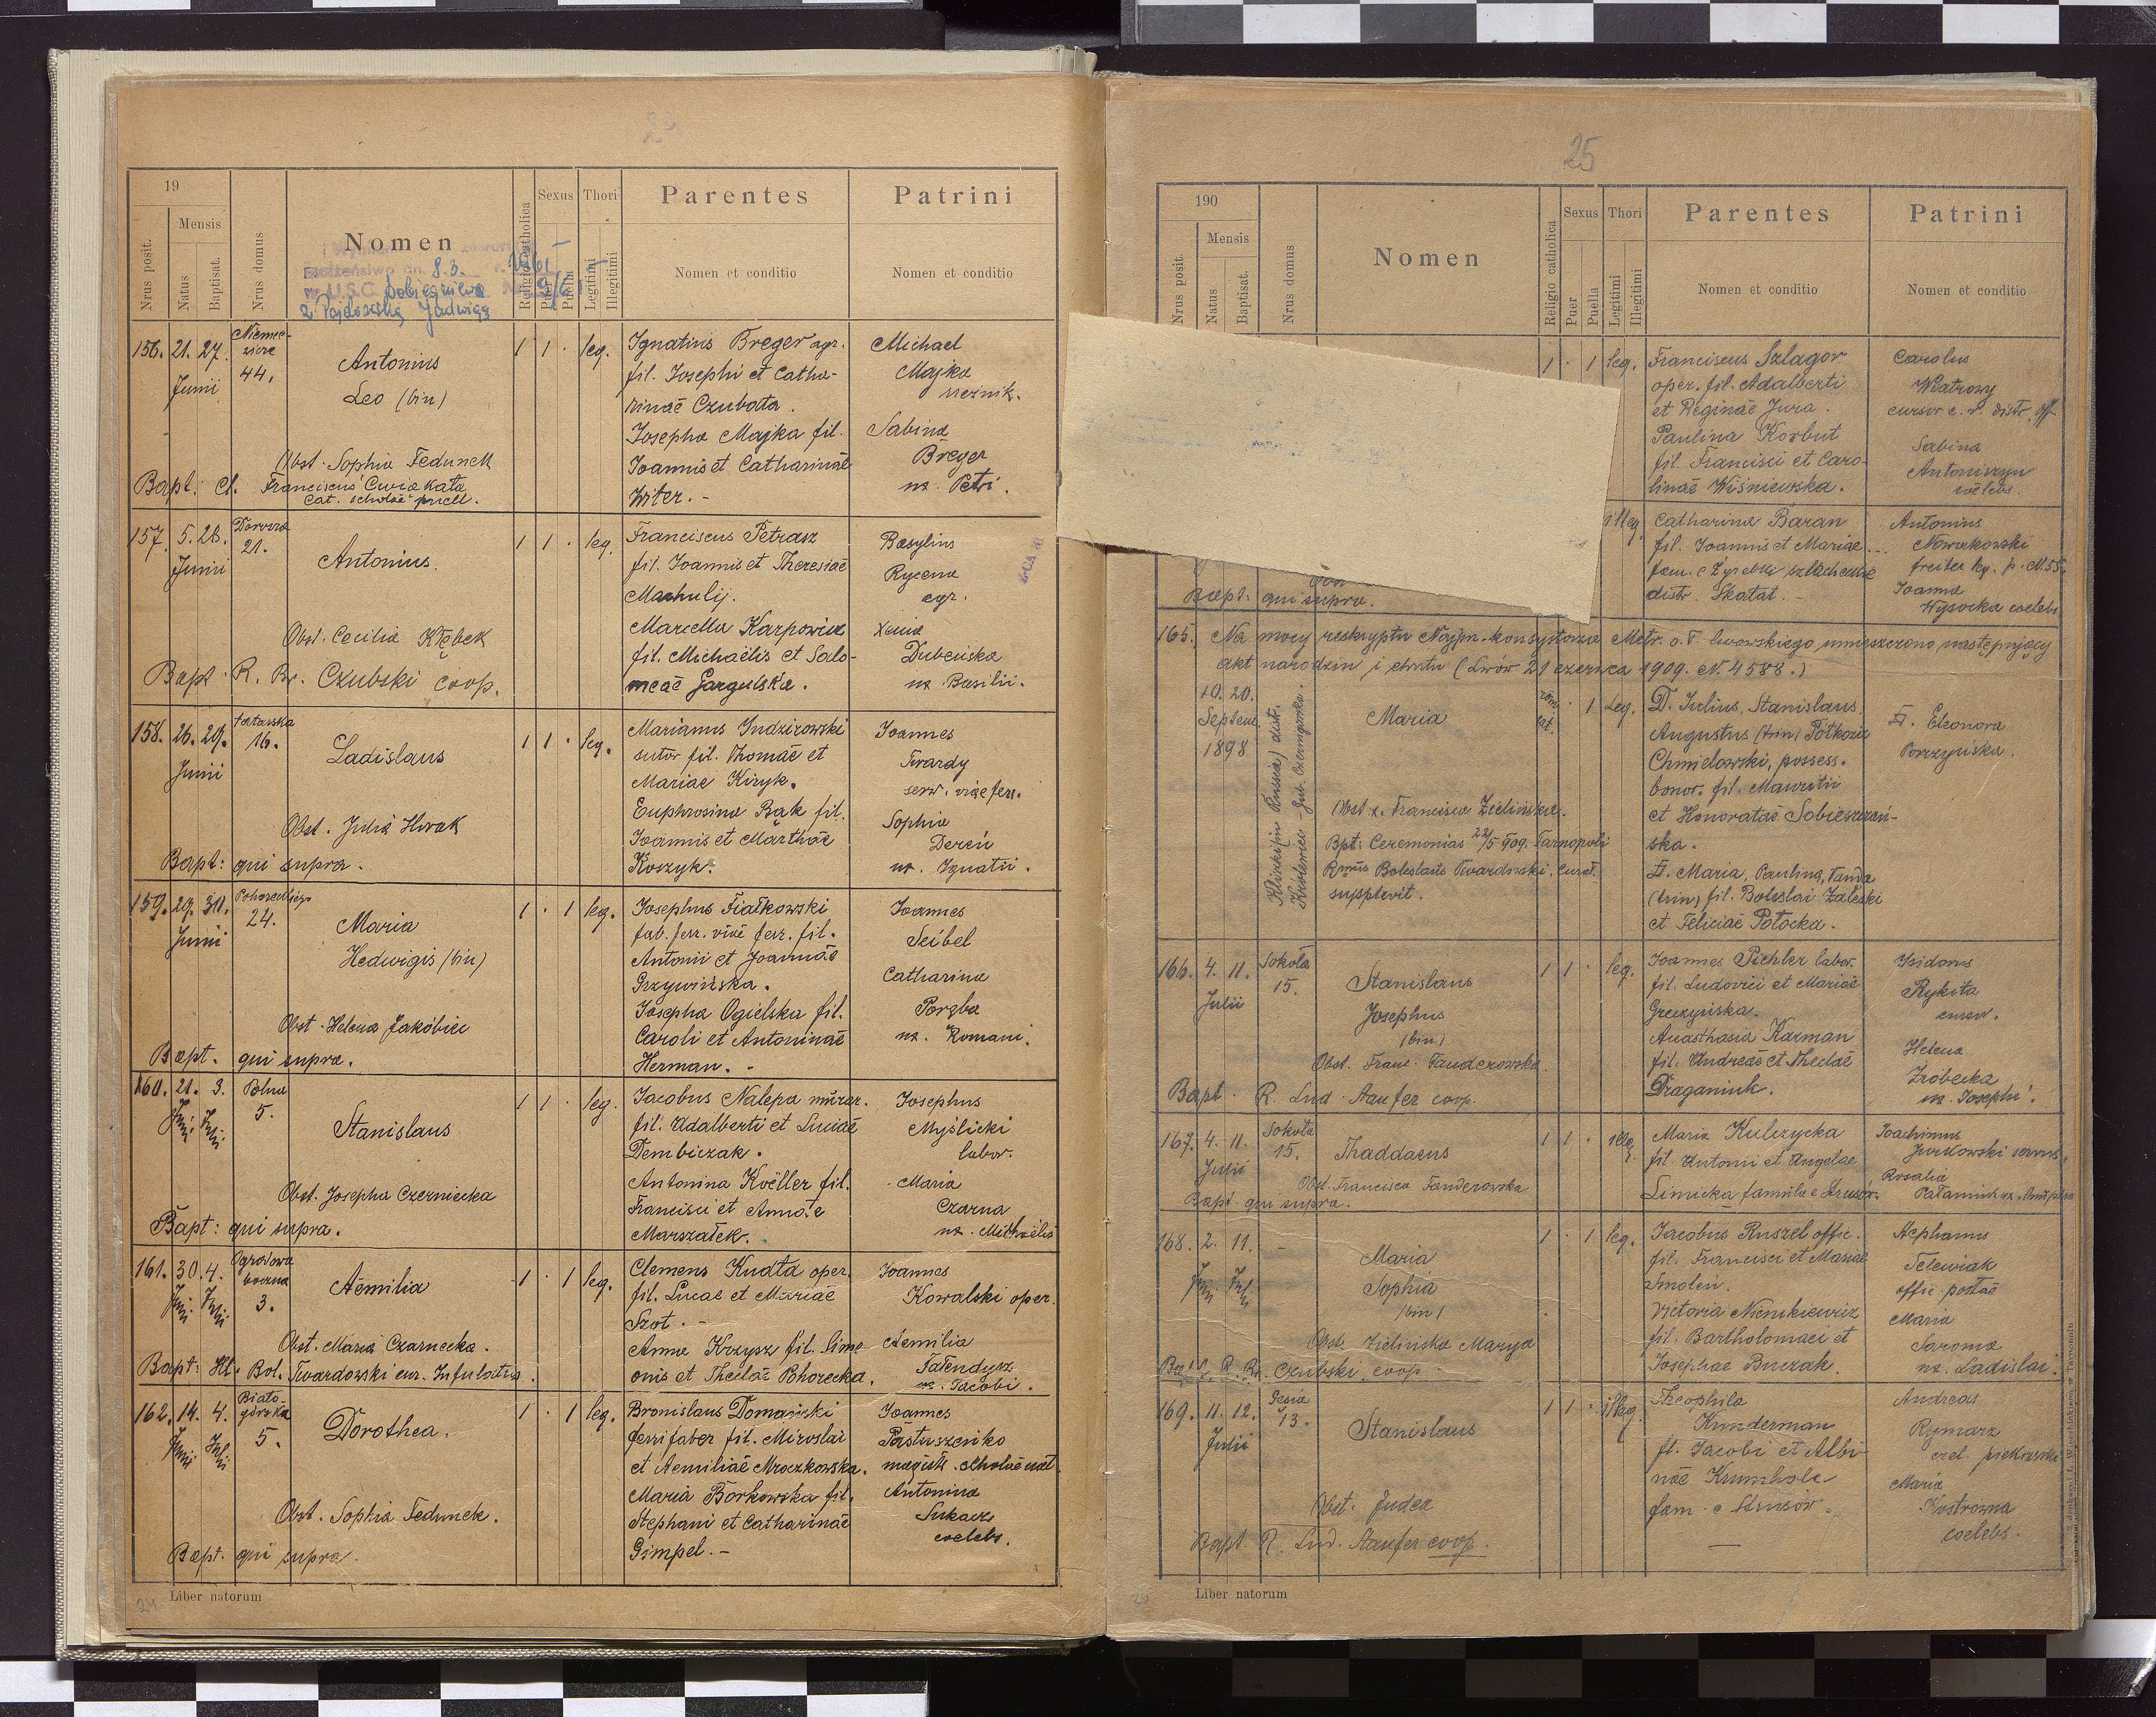 19
Mensis
Nrus posit.
Natus
Baptisat.
Nrus domus
Nomen
Religio catholica
Sexus
Puer
Puella
Thori
Legitimi
Illegitimi
Parentes
Nomen et conditio
Patrini
Nomen et conditio
8.3.
U.S.C.
Jadwigą
156. 21. 27. Junii
44.
Antonius
Leo (bin)
1 1 · leg.
Ignatius Breger agr.
fil. Josephi et Catha-
rinae
Josepha Majka fil.
Joannis et Catharinae
Witer. -
Michael
Majka
Sabina
Breger
ux. Petri.
Obst. Sophia Fedunek
Bapt: Cl. Franciscus Ćwiąkała
Cat. scholae puell.
157. 5. 28. Junii
21.
Antonius.
1 1 · leg.
Franciscus Petrasz
fil. Joannis et Theresiae
Machulij.
Marcella Karpowicz
fil. Michaëlis et Salo-
meae Gargulska.
Basylius
Rycena
agr.
Xenia
Dubeńska
ux. Basilii.
Obst. Cecilia Kłębek
Bapt. R. Br. Czubski coop.
158. 26. 29. Junii
16.
Ladislaus
1 1 · leg.
Marianus Indzirowski
sutor fil. Thomae et
Mariae Kiryk.
Euphrosina Bąk fil.
Joannis et Marthae
Koszyk.
Joannes
Twardy
serv. viae ferr.
Sophia
Dereń
ux. Ignatii.
Obst. Julia Horak
Bapt: qui supra.
159. 29. 30. Junii
24.
Maria
Hedwigis (bin)
1 · 1 leg.
Josephus Fiałkowski
fab. ferr. viae ferr. fil.
Antonii et Joannae
Grzywińska.
Josepha Ogielska fil.
Caroli et Antoninae
Herman. -
Joannes
Seibel
Catharina
Poręba
ux. Romani.
Obst. Helena Jakóbiec
Bapt. qui supra.
160. 21. 3. Juni. Juli.
Polna
5.
Stanislaus
1 1 · leg.
Jacobus Nalepa murar.
fil. Adalberti et Luciae
Dembiczak.
Antonina Koëller fil.
Francisci et Annae
Marszałek.
Josephus
Myślicki
labor.
Maria
Czarna
ux. Michaëlis
Obst. Josepha Czerniecka
Bapt: qui supra.
161. 30. 4. Juni. Juli.
Ogrodowa
boczna
3.
Aemilia
1 · 1 leg.
Clemens Kudła oper.
fil. Lucae et Mariae
Szot. -
Anna Krzysz fil. Sime
onis et Theclae Phorecka.
Joannes
Kowalski oper.
Aemilia
Tatendysz
ux. Jacobi.
Obst. Maria Czarnecka.
Bapt: Ill. Bol. Twardowski cur. Infulatus.
162. 14. 4. Juni. Juli
Biało-
górska
5.
Dorothea.
1 · 1 leg.
Bronislaus Domański
ferrifaber fil. Miroslai
et Aemiliae Mroczkowska.
Maria Borkowska fil.
Stephani et Catharinae
Gimpel. -
Joannes
Pastuszenko
magistr. scholae
Antonina
Sukacz
coelebs.
Obst. Sophia Fedunek.
Bapt. qui supra.
Liber natorum
24
25
190
Mensis
Nrus posit.
Natus
Baptisat.
Nrus domus
Nomen
Religio catholica
Sexus
Puer
Puella
Thori
Legitimi
Illegitimi
Parentes
Nomen et conditio
Patrini
Nomen et conditio
1 · 1 leg.
Franciscus Szlagor
oper. fil. Adalberti
et Reginae Jura.
Paulina Korbut
fil. Francisci et Caro-
linae Wiśniewska.
Carolus
Wiatrowy
cursor c. r. distr. off.
Sabina
Antoniszyn
coelebs.
illeg.
Catharina Baran
fil. Joannis et Mariae
fam. e Zyrebki szlacheckie
distr. Skałat. -
Antonius
Nowakowski
Joanna
Wysocka coelebs
Bapt: qui supra.
165. Na mocy reskryptu Najprz. konsystorza Metr. o. ł. lwowskiego umieszczono następujący
akt narodzin i chrztu (Lwów 21 czerwca 1909. N. 4588.)
10. 20.
Septem
1898
Maria
rom. lat. · 1 Leg.
D. Julius, Stanislaus,
Augustus (trin) Półkozic
Chmielowski, possess.
bonor. fil. Mauritii
et Honoratae Sobieszczań-
ska.
D. Maria, Paulina, Vanda
(trin) fil. Boleslai Zaleski
et Feliciae Potocka.
D. Eleonora
Porczyńska.
Obst. Francisca Zielińska.
Bpt: Ceremonias 22/5 909. Tarnopoli
Rmus Boleslaus Twardowski, Curat.
supplevit.
166. 4. 11. Julii
Sokoła
15.
Stanislaus
Josephus
(bin)
1 1 · leg.
Joannes Pichler labor.
fil. Ludovici et Mariae
Greczyńska.
Anasthasia Karman
fil. Andreae et Theclae
Draganiuk.
Isidorus
Rykita
Helena
Zróbecka
ux. Josephi.
Obst. Franc. Fanderowska.
Bapt. R. Lud. Staufer coop.
167. 4. 11. Julii
Sokoła
15.
Thaddaeus
1 1 · illeg.
Maria Kulczycka
fil. Antonii et Angelae
Limicka famula e Strusów.
Joachimus
Jurkowski servus.
Rosalia
Obst. Francisca Fanderowska
Bapt. qui supra.
168. 2. 11. Juni Juli
-
Maria
Sophia
(bin)
1 · 1 leg.
Jacobus Ruszel offic.
fil. Francisci et Mariae
Smoleń.
Victoria Nienkiewicz
fil. Bartholomaei et
Josephae Buczak.
Stephanus
Telewiak
offic. postae
Maria
Saroma
ux. Ladislai.
Obst. Zielińska Marya
Bapt. R. Br. Czubski coop
169. 11. 12. Julii
13.
Stanislaus
1 1 · illeg.
Theophila
Kunderman
fil. Jacobi et Albi-
nae Krumhole
fam. e Strusów.
Andreas
Rymarz
czel. piekarski
Maria
Kustrowna
coelebs.
Obst. Judea
Bapt. R. Lud. Staufer coop.
Liber natorum